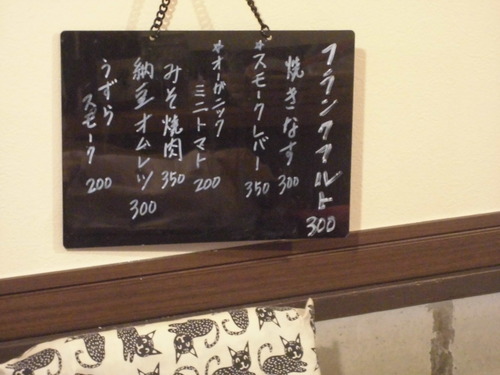 フランクフルト 300
焼きなす 300
*スモークレバー 350
*オーガニック
ミニトマト 200
みそ焼肉 350
納豆オムレツ 300
うずら
スモーク 200